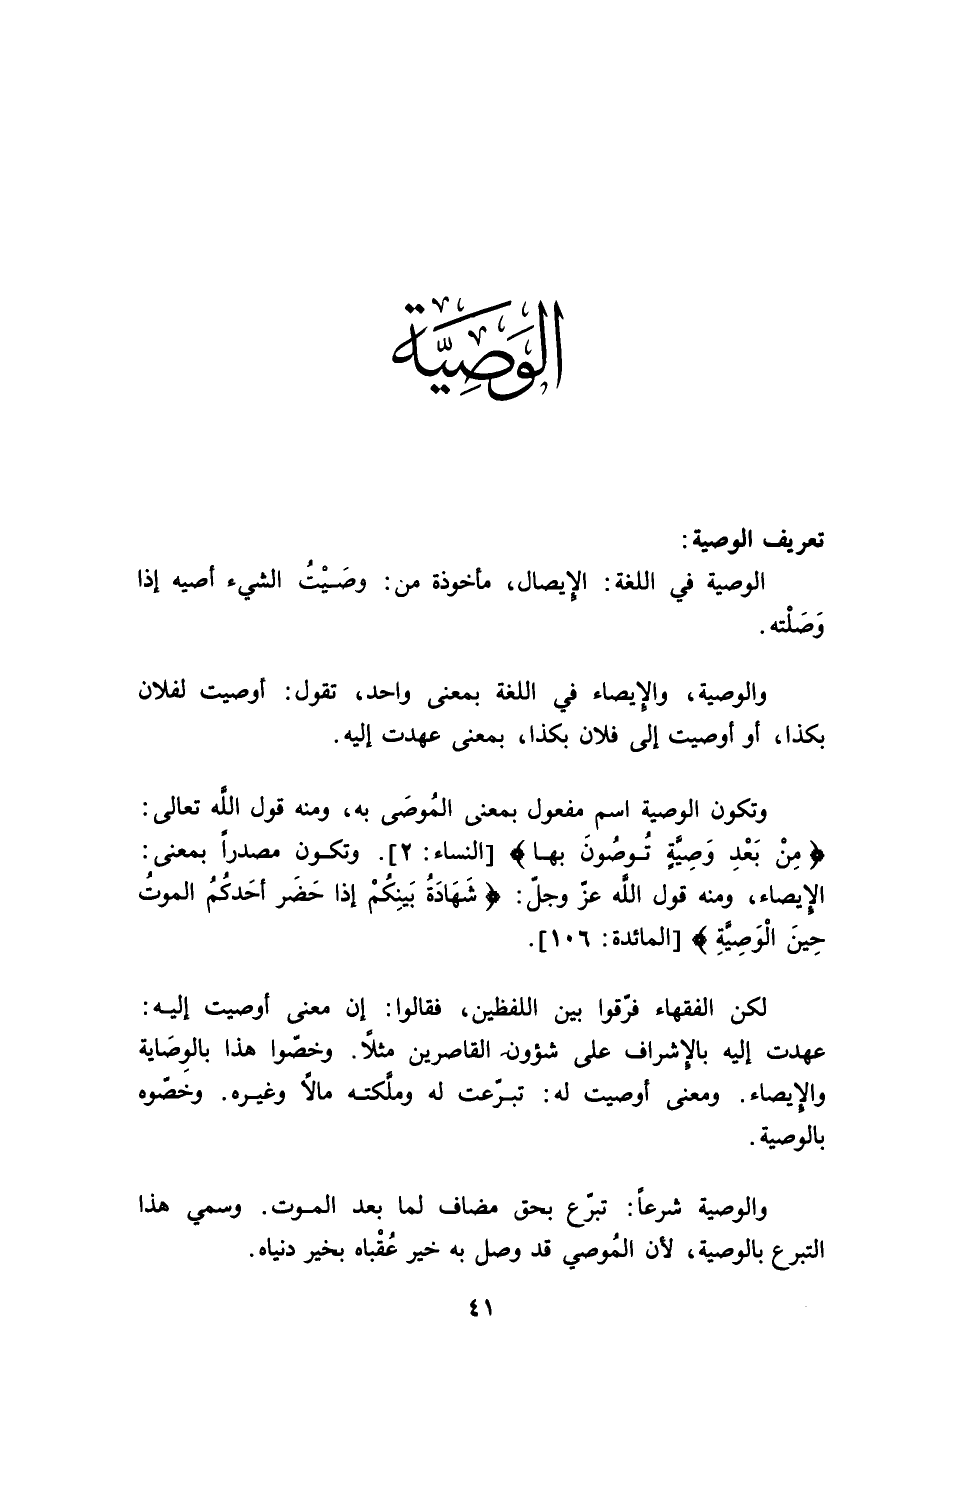 الوَصِيَّة
تعريف الوصية:
الوصية في اللغة: الإيصال، مأخوذة من: وصَيْتُ الشيء أصيه إذا
وَصَلْته.
والوصية، والإيصاء في اللغة بمعنى واحد، تقول: أوصيت لفلان
بكذا، أو أوصيت إلى فلان بكذا، بمعنى عهدت إليه.
وتكون الوصية اسم مفعول بمعنى المُوصَى به، ومنه قول اللَّه تعالى:
﴿ مِنْ بَعْدِ وَصِيَّةٍ تُوصُونَ بها ﴾ [النساء: ٢]. وتكون مصدراً بمعنى:
الإيصاء، ومنه قول اللَّه عزّ وجلّ: ﴿ شَهَادَةُ بَينِكُمْ إذا حَضَر أحَدكُمُ الموتُ
حِينَ الْوَصِيَّةِ ﴾ [المائدة: ١٠٦].
لكن الفقهاء فرّقوا بين اللفظين، فقالوا: إن معنى أوصيت إليه:
عهدت إليه بالإشراف على شؤون القاصرين مثلًا. وخصّوا هذا بالوِصَاية
والإيصاء. ومعنى أوصيت له: تبرّعت له وملَّكته مالًا وغيره. وخصّوه
بالوصية.
والوصية شرعاً: تبرّع بحق مضاف لما بعد الموت. وسمي هذا
التبرع بالوصية، لأن المُوصي قد وصل به خير عُقْباه بخير دنياه.
٤١